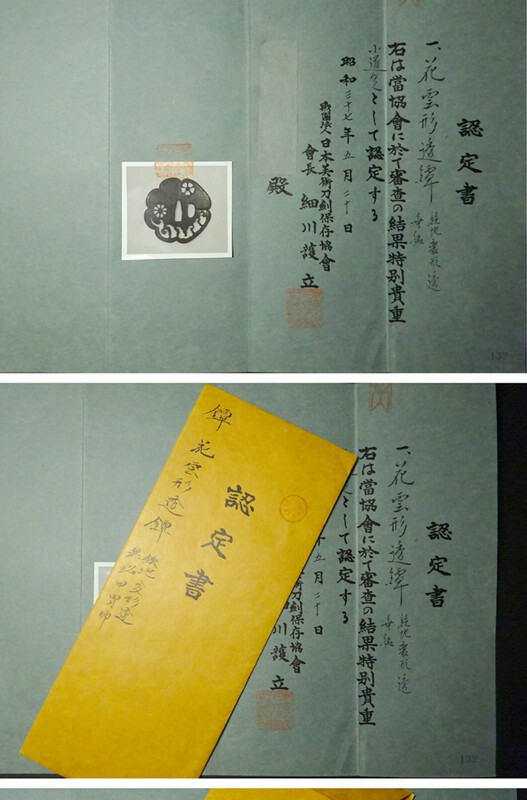 認定書
一、花雲形透鐔 鉄地変形透 無銘
右は當協會に於て審査の結果特別貴重
小道具として認定する
昭和三十七年五月二十日
財團法人日本美術刀劍保存協會
會長 細川護立
殿
132
認定書
一、花雲形透鐔 鉄地変形透 無銘
右は當協會に於て審査の結果特別貴重
として認定する
十五月二十日
術刀劍保存協會
川護立
132
認定書
鐔 花雲形透鐔 鉄地変形透
無銘